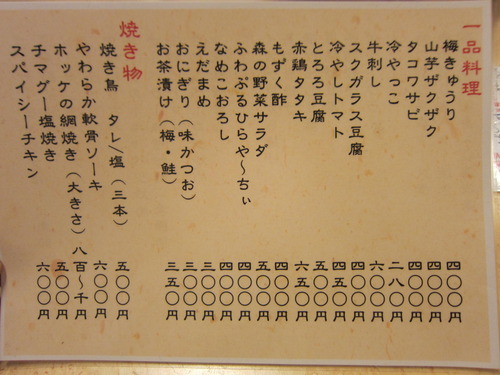 一品料理
梅きゅうり 四〇〇円
山芋ザクザク 四〇〇円
タコワサビ 四〇〇円
冷やっこ 二八〇円
牛刺し 六〇〇円
スクガラス豆腐 四〇〇円
冷やしトマト 四五〇円
とろろ豆腐 五〇〇円
赤鶏タタキ 六五〇円
もずく酢 四〇〇円
森の野菜サラダ 五〇〇円
ふわぷるひらや〜ちぃ 四〇〇円
なめこおろし 四〇〇円
えだまめ 三〇〇円
おにぎり（味かつお） 三〇〇円
お茶漬け（梅・鮭） 三五〇円
焼き物
焼き鳥 タレ/塩（三本） 五〇〇円
やわらか軟骨ソーキ 六〇〇円
ホッケの網焼き（大きさ） 八百〜千円
チマグー塩焼き 五〇〇円
スパイシーチキン 六〇〇円